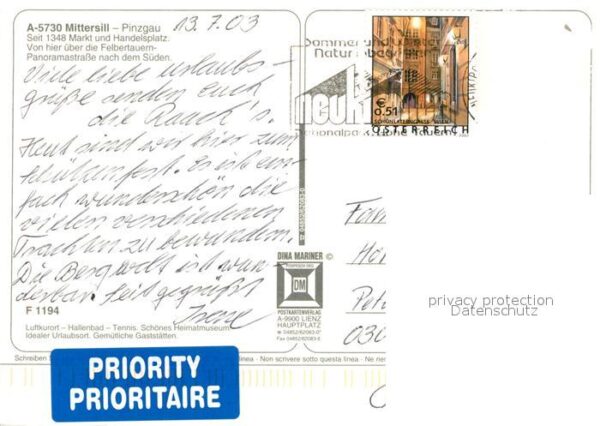 A-5730 Mittersill – Pinzgau
Seit 1348 Markt und Handelsplatz.
Von hier über die Felbertauern-
Panoramastraße nach dem Süden.
13.7.03
Viele liebe urlaubs-
grüße senden euch
die Raack's.
Heut sind wir hier zum
Schützenfest. Es ist ein-
fach wunderschön die
vielen verschiedenen
Trachten zu bewundern.
Die Bergwelt ist wun-
derbar. Seit gegrüßt
Irene
F 1194
Luftkurort – Hallenbad – Tennis. Schönes Heimatmuseum.
Idealer Urlaubsort. Gemütliche Gaststätten.
Schreiben
linea. - Non scrivere sotto questa linea
PRIORITY
PRIORITAIRE
Sommer und
Natur
neuk
nationalpark Hohe Tauern
€
0,51
SCHÖNLATERNGASSE WIEN
ÖSTERREICH
DINA MARINER ©
DM
POSTKARTENVERLAG
A-9900 LIENZ
HAUPTPLATZ
04852/62083-0*
Fax 04852/62083-6
Fam
Hör
Pet
030
privacy protection
Datenschutz